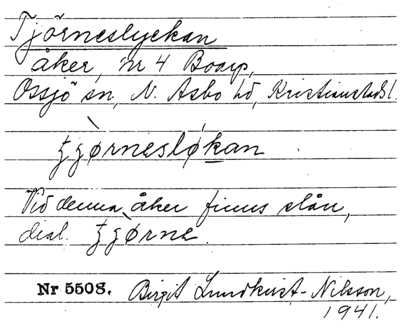 Tjörneslyckan
åker, nr 4 Boarp,
Ossjö sn, N. Asbo hd, Kristianstads l.
tjø̀rneslø̀kan
Vid denna åker finns slån,
dial. tjø̀rne.
Nr 5508. Birgit Lundkvist-Nilsson,
1941.